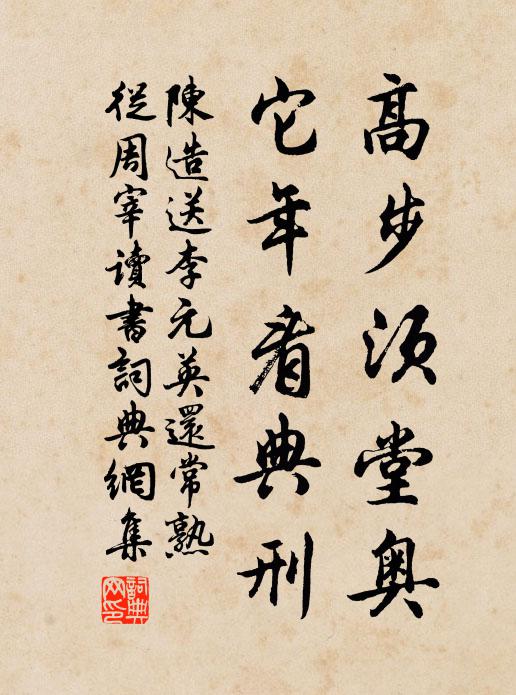 高步須堂奧
它年看典刑
陳造送李元英還常熟
從周宰讀書詞典網集
詞典網印